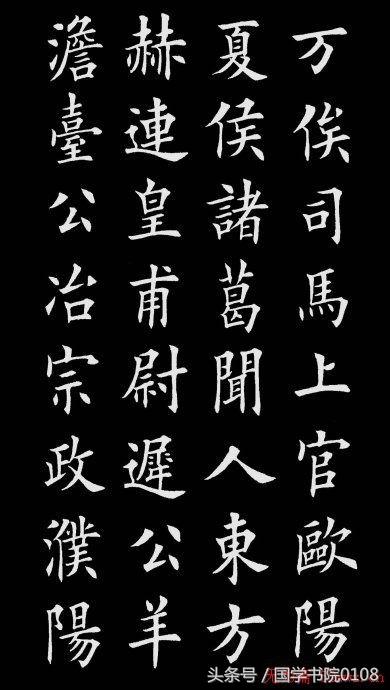 万俟司馬上官歐陽
夏侯諸葛聞人東方
赫連皇甫尉遲公羊
澹臺公冶宗政濮陽
头条号 / 国学书院0108